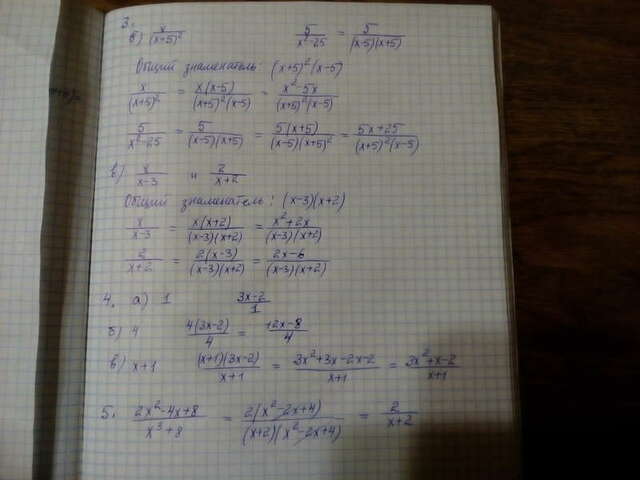 3.
б) x/(x+5)²     5/(x²-25) = 5/((x-5)(x+5))
Общий знаменатель: (x+5)²(x-5)
x/(x+5)² = x(x-5)/((x+5)²(x-5)) = (x²-5x)/((x+5)²(x-5))
5/(x²-25) = 5/((x-5)(x+5)) = 5(x+5)/((x-5)(x+5)²) = (5x+25)/((x+5)²(x-5))
в) x/(x-3) и 2/(x+2)
Общий знаменатель: (x-3)(x+2)
x/(x-3) = x(x+2)/((x-3)(x+2)) = (x²+2x)/((x-3)(x+2))
2/(x+2) = 2(x-3)/((x-3)(x+2)) = (2x-6)/((x-3)(x+2))
4. а) 1     (3x-2)/1
б) 4     4(3x-2)/4 = (12x-8)/4
в) x+1     (x+1)(3x-2)/(x+1) = (3x²+3x-2x-2)/(x+1) = (3x²+x-2)/(x+1)
5. (2x²-4x+8)/(x³+8) = 2(x²-2x+4)/((x+2)(x²-2x+4)) = 2/(x+2)